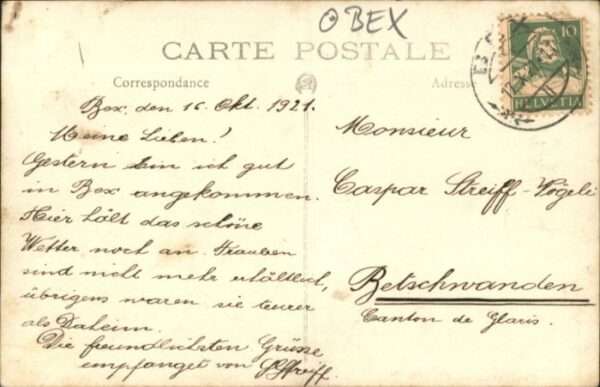 OBEX
CARTE POSTALE
Correspondance
Adresse
10
HELVETIA
Bex, den 16 Okt. 1921.
Meine Lieben!
Gestern bin ich gut
in Bex angekommen.
Hier hält das schöne
Wetter noch an. Trauben
sind nicht mehr erhältlich,
übrigens waren sie teurer
als Daheim.
Die freundlichsten Grüsse
empfanget von
Monsieur
Caspar Streiff-Vögeli
Betschwanden
Canton de Glaris.